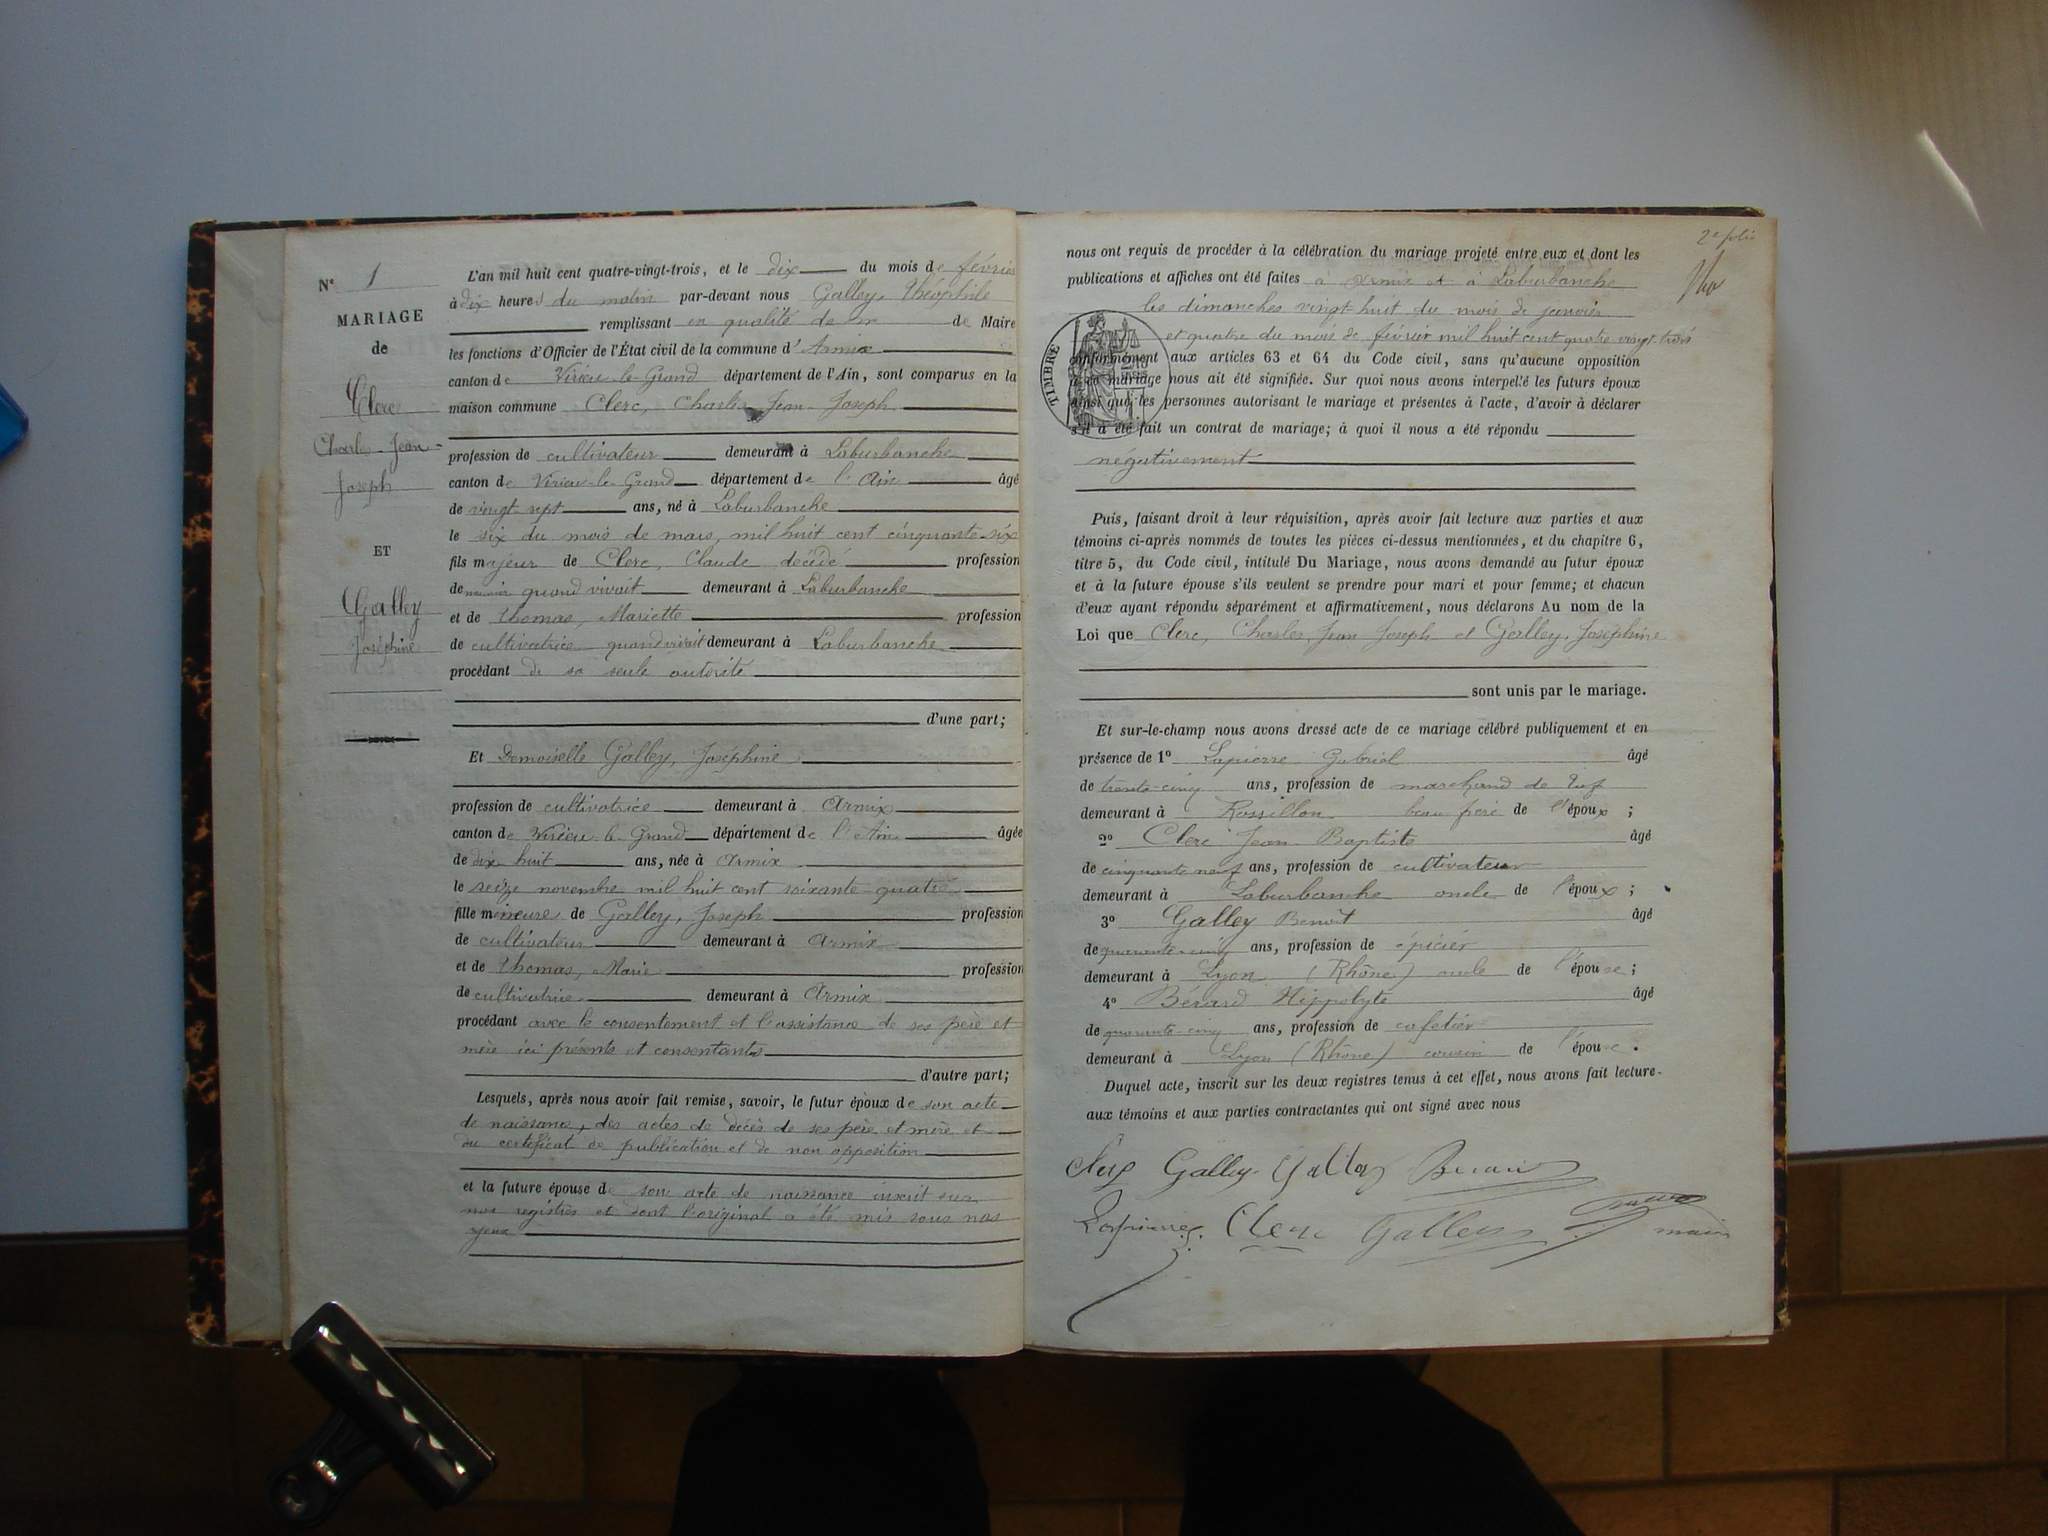 N° 1
MARIAGE
de
Clerc
Charles-Jean-
Joseph
ET
Galley
Joséphine
L'an mil huit cent quatre-vingt-trois, et le dix du mois de février
à dix heures du matin par-devant nous Galley, Théophile
remplissant en qualité de de Maire
les fonctions d'Officier de l'État civil de la commune d'Armix
canton de Virieu-le-Grand département de l'Ain, sont comparus en la
maison commune Clerc, Charles Jean-Joseph
profession de cultivateur demeurant à Laburbanche
canton de Virieu-le-Grand département de l'Ain âgé
de vingt sept ans, né à Laburbanche
le six du mois de mars, mil huit cent cinquante-six
fils majeur de Clerc, Claude décédé profession
de meunier quand vivait demeurant à Laburbanche
et de Thomas, Mariette profession
de cultivatrice quand vivait demeurant à Laburbanche
procédant de sa seule autorité
d'une part;
Et Demoiselle Galley, Joséphine
profession de cultivatrice demeurant à Armix
canton de Virieu-le-Grand département de l'Ain âgée
de dix huit ans, née à Armix
le seize novembre mil huit cent soixante-quatre
fille mineure de Galley, Joseph profession
de cultivateur demeurant à Armix
et de Thomas, Marie profession
de cultivatrice demeurant à Armix
procédant avec le consentement et l'assistance de ses père et
mère ici présents et consentants
d'autre part;
Lesquels, après nous avoir fait remise, savoir, le futur époux de son acte
de naissance, des actes de décès de ses père et mère et
du certificat de publication et de non opposition
et la future épouse de son acte de naissance inscrit sur
nos registres et dont l'original a été mis sous nos
yeux
2e folio
nous ont requis de procéder à la célébration du mariage projeté entre eux et dont les
publications et affiches ont été faites à Armix et à Laburbanche
les dimanches vingt-huit du mois de janvier
et quatre du mois de février mil huit cent quatre vingt-trois
TIMBRE
conformément aux articles 63 et 64 du Code civil, sans qu'aucune opposition
à ce mariage nous ait été signifiée. Sur quoi nous avons interpellé les futurs époux
ainsi que les personnes autorisant le mariage et présentes à l'acte, d'avoir à déclarer
s'il a été fait un contrat de mariage; à quoi il nous a été répondu
négativement
Puis, faisant droit à leur réquisition, après avoir fait lecture aux parties et aux
témoins ci-après nommés de toutes les pièces ci-dessus mentionnées, et du chapitre 6,
titre 5, du Code civil, intitulé Du Mariage, nous avons demandé au futur époux
et à la future épouse s'ils veulent se prendre pour mari et pour femme; et chacun
d'eux ayant répondu séparément et affirmativement, nous déclarons Au nom de la
Loi que Clerc, Charles, Jean Joseph et Galley, Joséphine
sont unis par le mariage.
Et sur-le-champ nous avons dressé acte de ce mariage célébré publiquement et en
présence de 1° Lapierre Gabriel âgé
de trente-cinq ans, profession de marchand de
demeurant à Rossillon beau frère de l'époux;
2° Clerc Jean-Baptiste âgé
de cinquante neuf ans, profession de cultivateur
demeurant à Laburbanche oncle de l'époux;
3° Galley Benoît âgé
de quarante-cinq ans, profession de épicier
demeurant à Lyon (Rhône) oncle de l'épouse;
4° Bérard Hippolyte âgé
de quarante-cinq ans, profession de cafetier
demeurant à Lyon (Rhône) cousin de l'épouse.
Duquel acte, inscrit sur les deux registres tenus à cet effet, nous avons fait lecture
aux témoins et aux parties contractantes qui ont signé avec nous
Clerc Galley Galley
Lapierre G. Clerc Galley maire